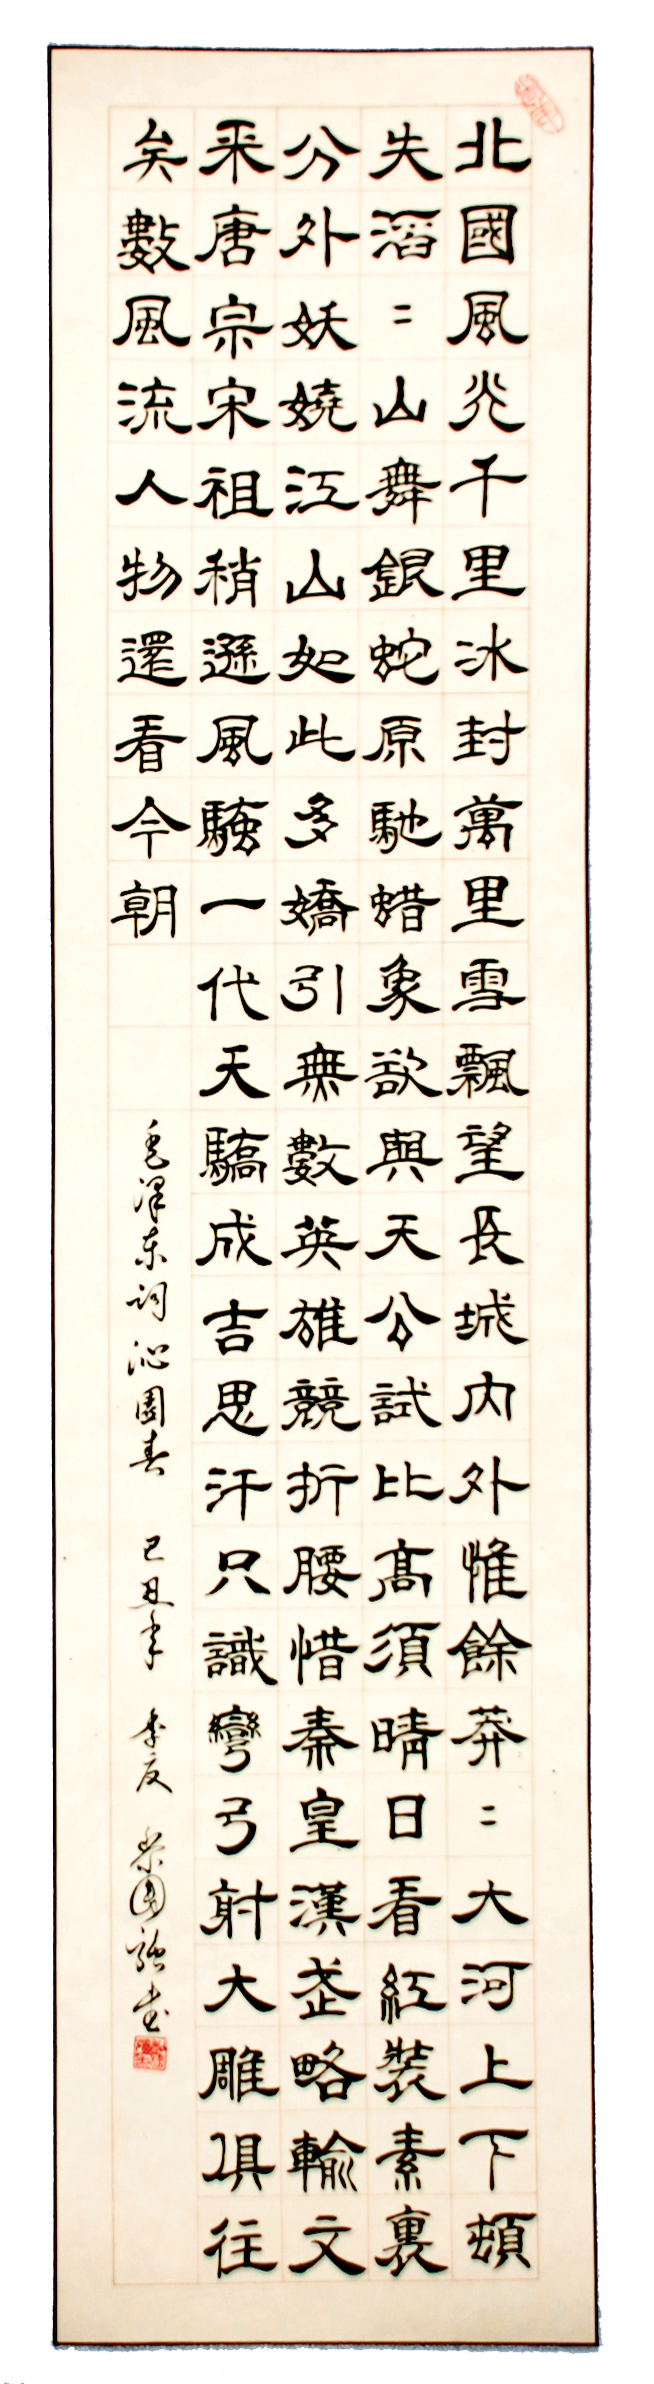 北國風光千里冰封萬里雪飄望長城內外惟餘莽〻大河上下頓
失滔〻山舞銀蛇原馳蜡象欲與天公試比高須晴日看紅裝素裹
分外妖嬈江山如此多嬌引無數英雄競折腰惜秦皇漢武略輸文
采唐宗宋祖稍遜風騷一代天驕成吉思汗只識彎弓射大雕俱往
矣數風流人物還看今朝
毛澤东詞沁園春 己丑年 季夏 荣国 书